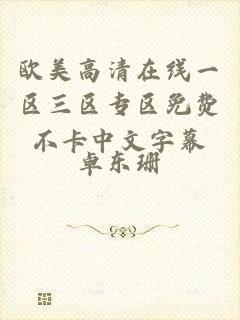 欧美高清在线一
区三区专区免费
不卡中文字幕
卓东珊